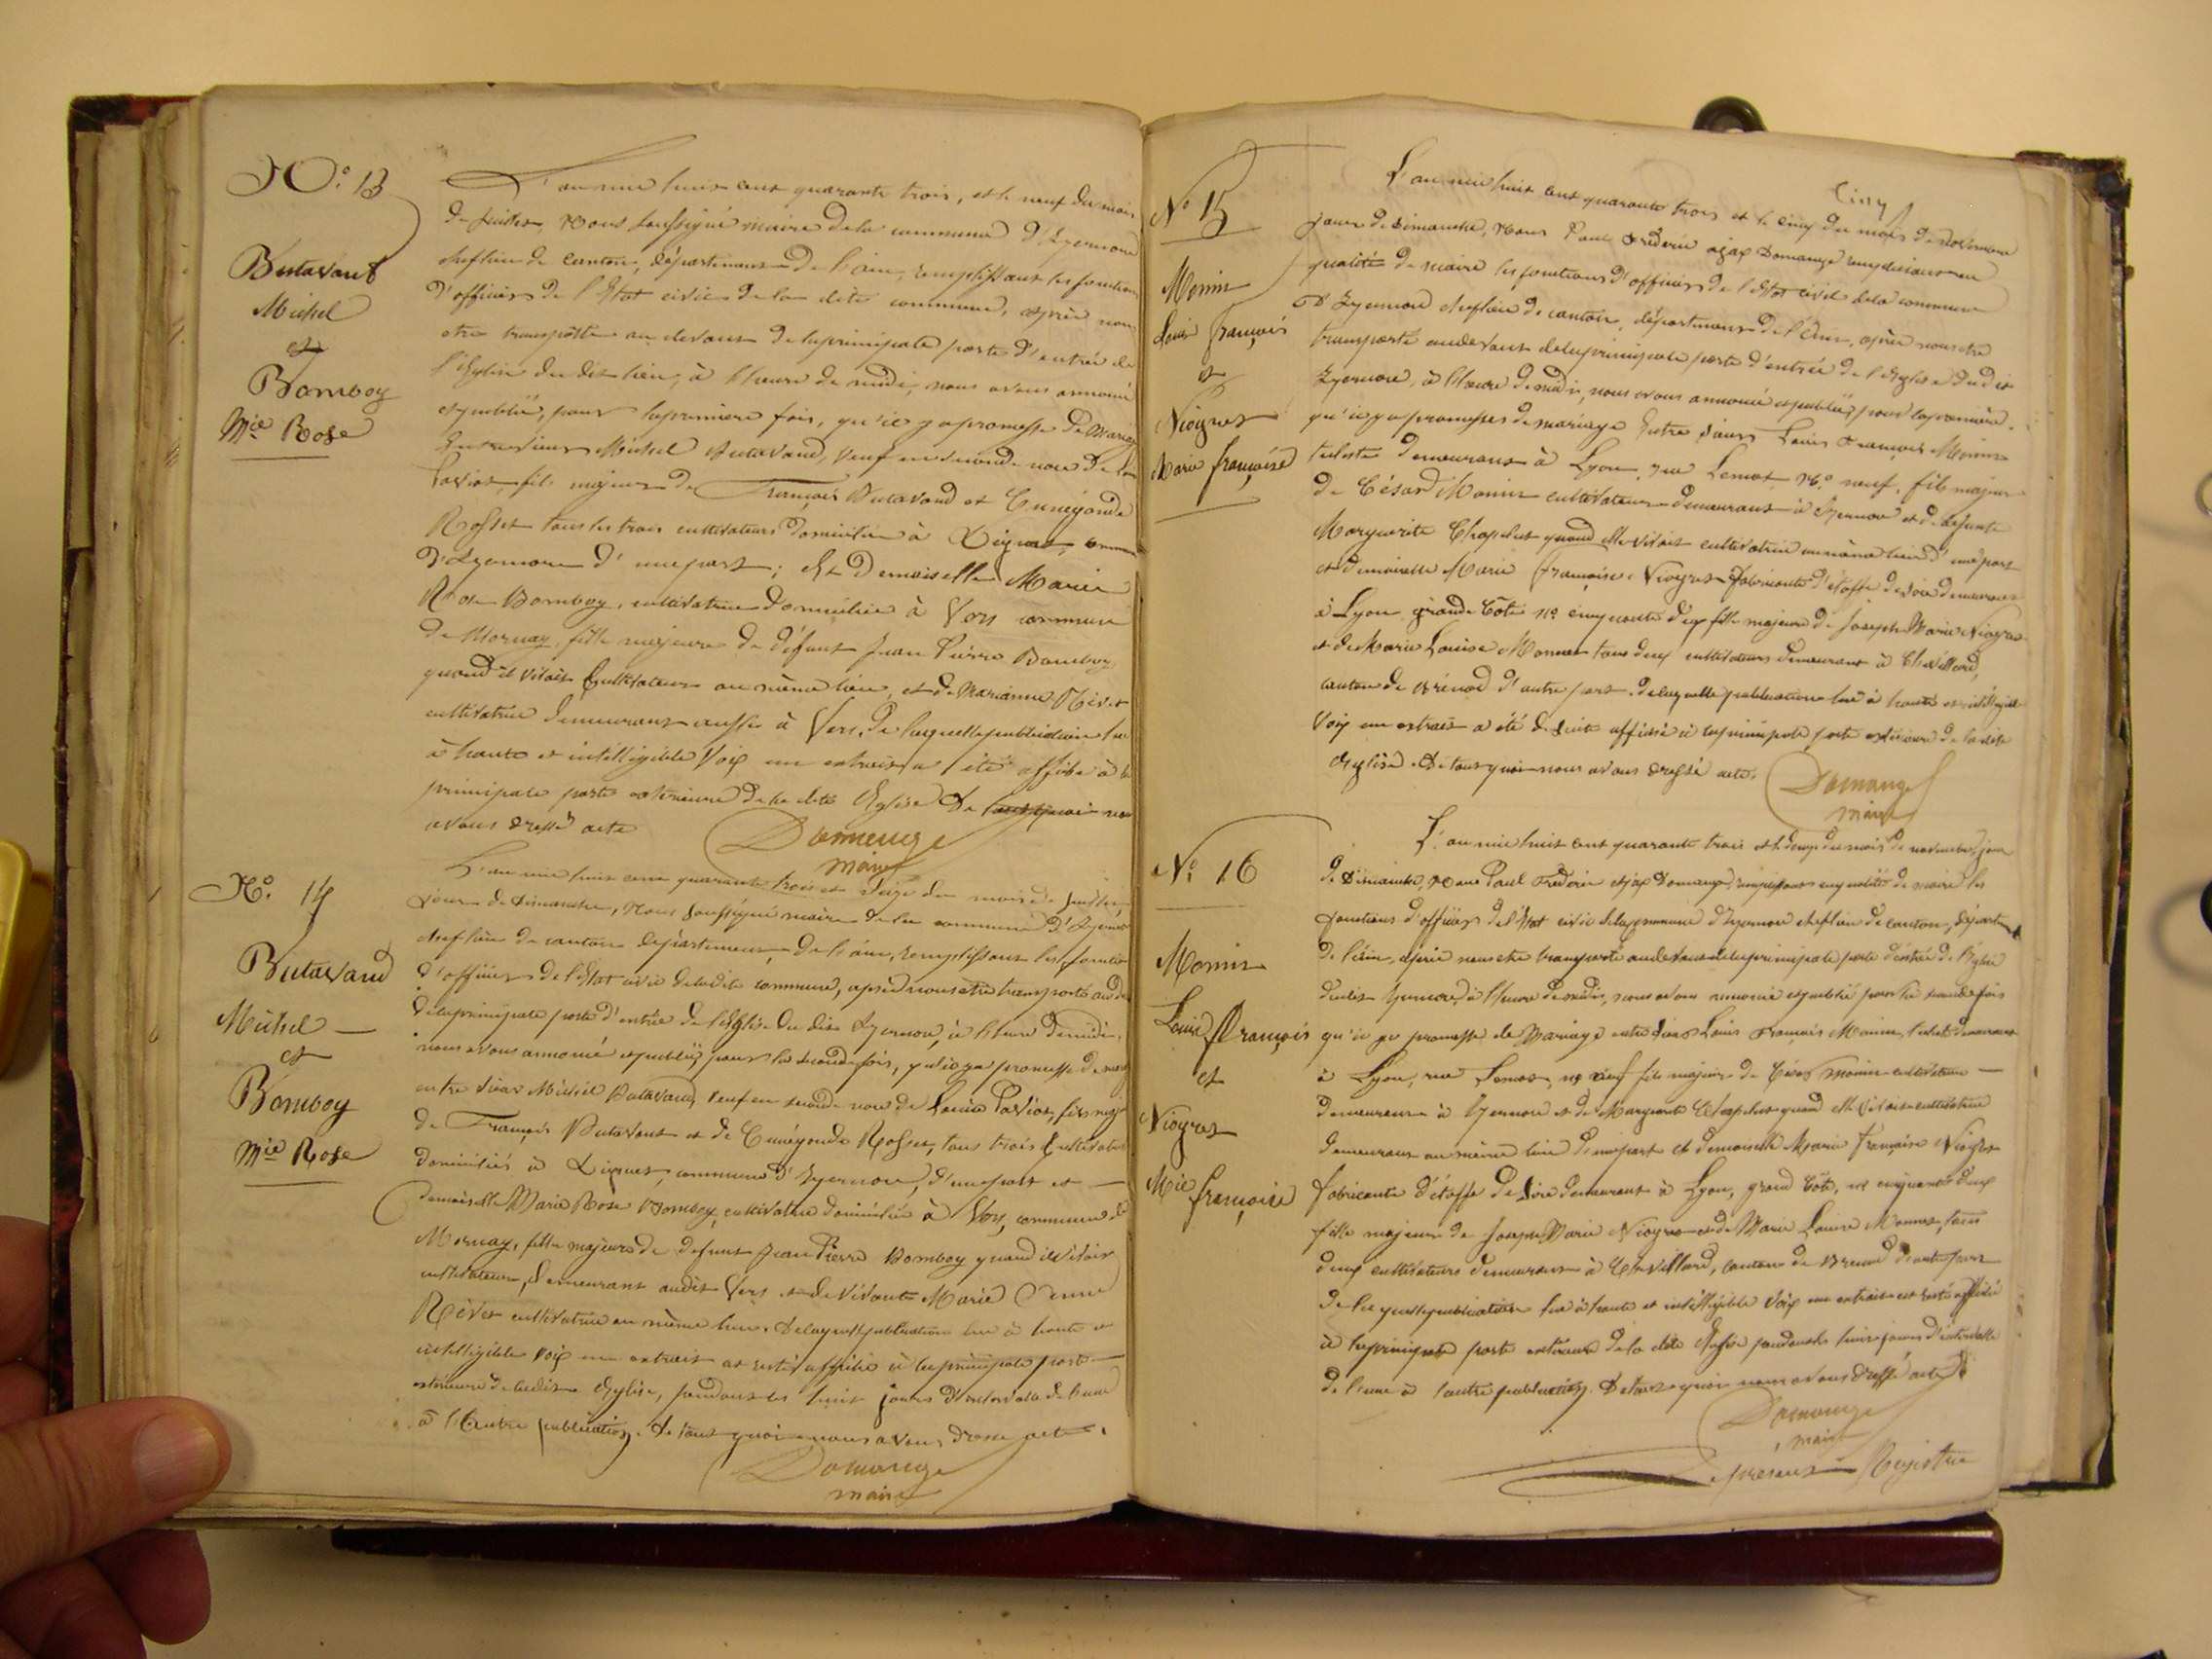 N.o 13
Butavant
Michel
et
Bomboy
Mie Rose
L'an mil huit cent quarante trois, et le neuf du mois
de juillet, Nous soussigné maire de la commune d'Izernore
cheflieu de canton, département de l'ain, remplissant les fonctions
d'officier de l'Etat civil de la dite commune, après nous
etre transporté au devant de la principale porte d'entrée de
l'Eglise du dit lieu, à l'heure de midi, nous avons annoncé
et publié, pour la premiere fois, qu'il y a promesse de mariage
Entre sieur Michel Butavand, veuf en seconde noce de
Pavios, fils majeur de François Butavand et Cunégonde
Rosset tous les trois cultivateurs domiciliés à
d'Izernore d'une part; Et Demoiselle Marie
Rose Bomboy, cultivatrice domiciliée à Vers commune
de Mornay, fille majeure de défunt Jean Pierre Bomboy
quand il vivait Cultivateur au même lieu, et de Marianne
cultivatrice demeurant aussi à Vers, De laquelle publication lue
à haute et intelligible Voix un extrait a été affiché à la
principale porte exterieure de la dite Eglise De tout quoi nous
avons dressé acte
Domange
maire
N.o 14
Butavand
Michel
et
Bomboy
Mie Rose
L'an mil huit cent quarante trois et seize du mois de juillet,
jour de dimanche, Nous soussigné maire de la commune d'Izernore
cheflieu de canton département de l'ain, remplissant les fonctions
d'officier de l'Etat civil de la dite commune, après nous etre transporté au devant
de la principale porte d'entrée de l'Eglise du dit Izernore, à l'heure de midi,
nous avons annoncé et publié, pour la seconde fois, qu'il y a promesse de mariage
entre sieur Michel Butavand, veuf en seconde noce de Pavios, fils majeur
de François Butavant et de Cunégonde Rosset, tous trois Cultivateurs
domiciliés à commune d'Izernore, d'une part et
demoiselle Marie Rose Bomboy, cultivatrice domiciliée à Vers, commune de
Mornay, fille majeure de defunt Jean Pierre Bomboy quand il vivait
cultivateur, demeurant audit Vers et de vivante Marie Anne
cultivatrice au même lieu. De laquelle publication lue à haute et
intelligible voix un extrait est resté affiché à la principale porte
exterieure de ladite Eglise, pendant les huit jours d'intervale de l'une
à l'Autre publication. De tout quoi nous avons dressé acte.
Domange
maire
N.o 15
Monin
Louis françois
et
Niogret
Marie françoise
cinq
L'an mil huit cent quarante trois et le cinq du mois de Novembre
jour de dimanche, Nous Paul Frédéric ajax Domange remplissant en
qualité de maire les fonctions d'officier de l'Etat civil de la commune
d'Izernore cheflieu de canton, département de l'Ain, après nous etre
transporté au devant de la principale porte d'entrée de l'Eglise dudit
Izernore, à l'heure de midi, nous avons annoncé et publié, pour la première
qu'il y a promesses de mariage Entre sieur Louis François Monin
demeurant à Lyon, rue Lemot No neuf, fils majeur
de César Monin cultivateur demeurant à Izernore et de défunte
Marguerite Chapelut quand elle vivait cultivatrice au même lieu d'une part
et demoiselle Marie françoise Niogret fabricante d'étoffe de soie demeurant
à Lyon grande Côte No cinquante deux fille majeure de Joseph Marie Niogret
et de Marie Louise Monnet tous deux cultivateurs demeurant à Chevillard,
canton de Brénod d'autre part. de laquelle publication lue à haute et intelligible
Voix un extrait a été de suite affiché à la principale porte exterieure de la dite
Eglise. De tout quoi nous avons dressé acte.
Domange
maire
N.o 16
Monin
Louis François
et
Niogret
Mie françoise
L'an mil huit cent quarante trois et le douze du mois de novembre, jour
de dimanche, Nous Paul Frédéric ajax Domange, remplissant en qualité de maire les
fonctions d'officier de l'Etat civil de la commune d'Izernore cheflieu de canton, départem
de l'ain, après nous etre transporté au devant de la principale porte d'entrée de l'Eglise
dudit Izernore à l'heure de midi, nous avons annoncé et publié pour la seconde fois
qu'il y a promesse de Mariage entre sieur Louis François Monin, demeurant
à Lyon, rue Lemot, no neuf fils majeur de César Monin cultivateur
demeurant à Izernore et de Marguerite Chapelut quand elle vivait cultivatrice
demeurant au même lieu d'une part et demoiselle Marie Françoise Niogret
fabricante d'étoffe de soie demeurant à Lyon, grand Côte, no cinquante deux
fille majeure de Joseph Marie Niogret et de Marie Louise Monnet, tous
deux cultivateurs demeurant à Chevillard, canton de Brenod d'autre part
de laquelle publication lue à haute et intelligible Voix un extrait est resté affiché
à la principale porte exterieure de la dite Eglise pendant les huit jours d'intervalle
de l'une à l'autre publication. De tout quoi nous avons dressé acte.
Domange
maire
present Registre